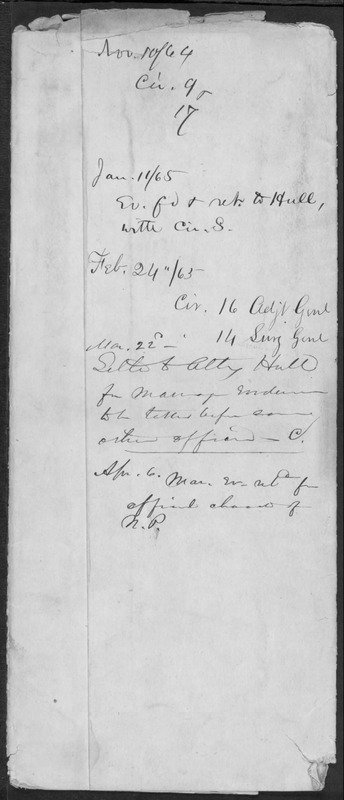 Nov. 10/64
Cir. 9
17
Jan. 11/65
Ev. f'd & ret. to Hull,
with Cir. S.
Feb. 24"/65
Cir. 16 Adjt Genl
14 Surg Genl
Mar. 22d
Letter to Atty Hull
for Marriage Evidence
to be taken before some
other officer — C.
Apr. 6. Mar. Ev. retd for
official charac of
N.P.